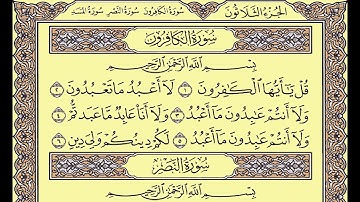 الجزء الثلاثون سورة الكافرون سورة النصر سورة المسد
سورة الكافرون
بسم الله الرحمن الرحيم
قُلْ يَٰٓأَيُّهَا ٱلْكَٰفِرُونَ ١ لَآ أَعْبُدُ مَا تَعْبُدُونَ ٢
وَلَآ أَنتُمْ عَٰبِدُونَ مَآ أَعْبُدُ ٣ وَلَآ أَنَا۠ عَابِدٌ مَّا عَبَدتُّمْ ٤
وَلَآ أَنتُمْ عَٰبِدُونَ مَآ أَعْبُدُ ٥ لَكُمْ دِينُكُمْ وَلِىَ دِينِ ٦
سورة النصر
بسم الله الرحمن الرحيم